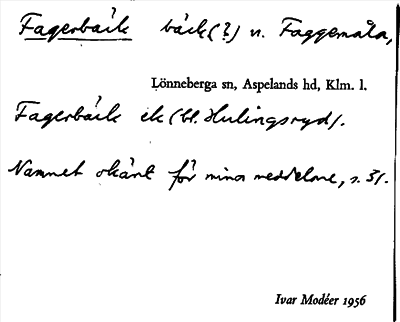 Fagerbäck bäck(?) n. Faggemåla,
Lönneberga sn, Aspelands hd, Klm. l.
Fagerbäck ek (bl. Hulingsryd).
Namnet okänt för mina meddelare, s. 31.
Ivar Modéer 1956